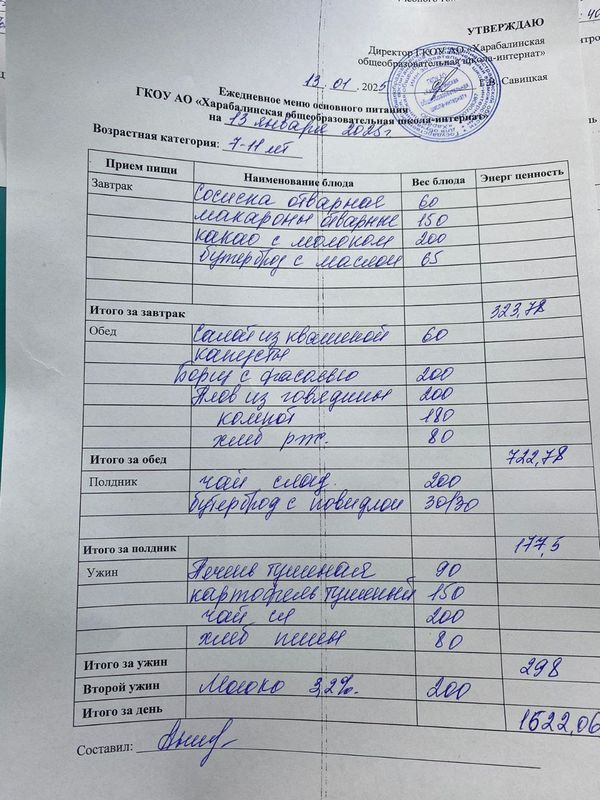 УТВЕРЖДАЮ
Директор ГКОУ АО «Харабалинская
общеобразовательная школа-интернат»
13. 01. 2025 Е.В. Савицкая
Ежедневное меню основного питания
ГКОУ АО «Харабалинская общеобразовательная школа-интернат»
на 13 января 2025 г
Возрастная категория: 7-11 лет
Прием пищи Наименование блюда Вес блюда Энерг ценность
Завтрак Сосиска отварная 60
макароны отварные 150
какао с молоком 200
бутерброд с маслом 65
Итого за завтрак 323,78
Обед Салат из квашеной 60
капусты
Борщ с фасолью 200
Плов из говядины 200
компот 180
хлеб рж. 80
Итого за обед 722,78
Полдник чай слад. 200
бутерброд с повидлом 30/30
Итого за полдник 177,5
Ужин Печень тушеная 90
картофель тушеный 150
чай сл 200
хлеб пшен 80
Итого за ужин 298
Второй ужин Молоко 3,2%. 200
Итого за день 1522,06
Составил: